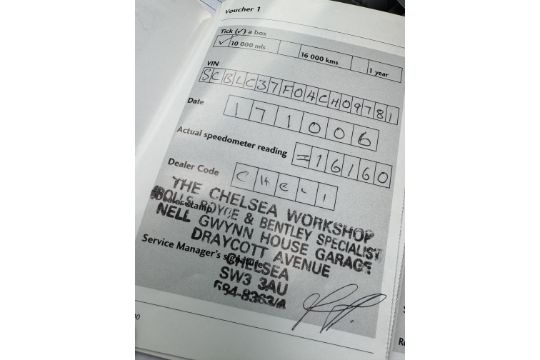 Voucher 1
Tick (✓) a box
✓ 10 000 mls 16 000 kms 1 year
VIN
SCBLC37F04CH09781
Date
171006
Actual speedometer reading =16160
Dealer Code CHEL1
THE CHELSEA WORKSHOP
ROLLS ROYCE & BENTLEY SPECIALIST
NELL GWYNN HOUSE GARAGE
DRAYCOTT AVENUE
Service Manager's
CHELSEA
SW3 3AU